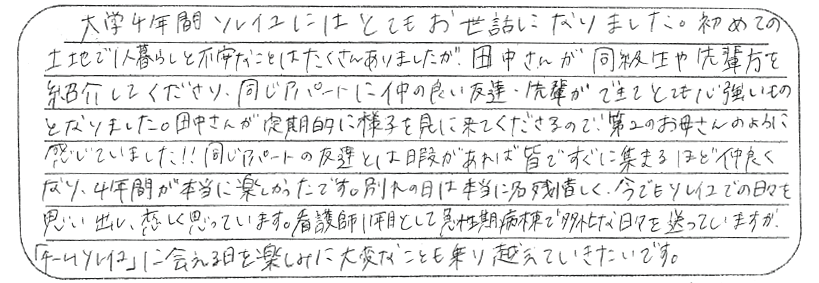 大学4年間ソレイユにはとてもお世話になりました。初めての
土地で1人暮らしと不安なことはたくさんありましたが、田中さんが同級生や先輩方を
紹介してくださり、同じアパートに仲の良い友達・先輩ができてとても心強いもの
となりました。田中さんが定期的に様子を見に来てくださるので、第2のお母さんのように
感じていました!!同じアパートの友達とは日殷があれば皆ですぐに集まるほど仲良く
なり、4年間が本当に楽しかったです。別れの日は本当に名残惜しく、今でもソレイユでの日々を
思い出し、恋しく思っています。看護師1年目として急性期病棟で多忙な日々を送っていますが、
「チームソレイユ」に会える日を楽しみに大変なことも乗り越えていきたいです。